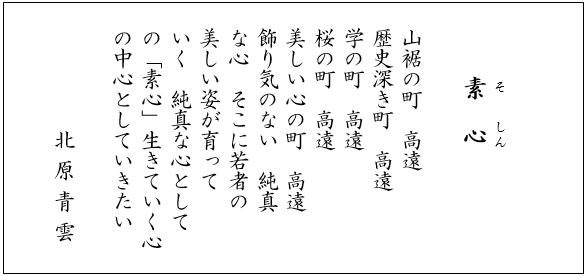 素心
そしん
山裾の町　高遠
歴史深き町　高遠
学の町　高遠
桜の町　高遠
美しい心の町　高遠
飾り気のない　純真
な心　そこに若者の
美しい姿が育って
いく　純真な心として
の「素心」生きていく心
の中心としていきたい
北原青雲